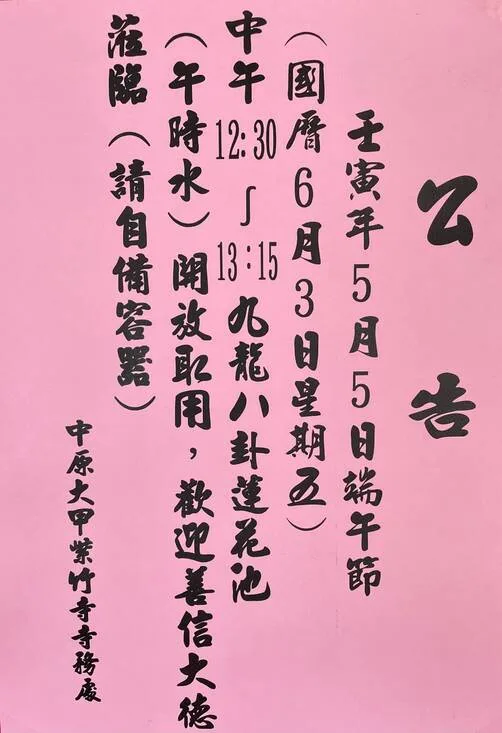 公告
壬寅年5月5日端午節
(國曆6月3日星期五)
中午12:30∫13:15九龍八卦蓮花池
(午時水)開放取用，歡迎善信大德
蒞臨(請自備容器)
中原大甲紫竹寺寺務處